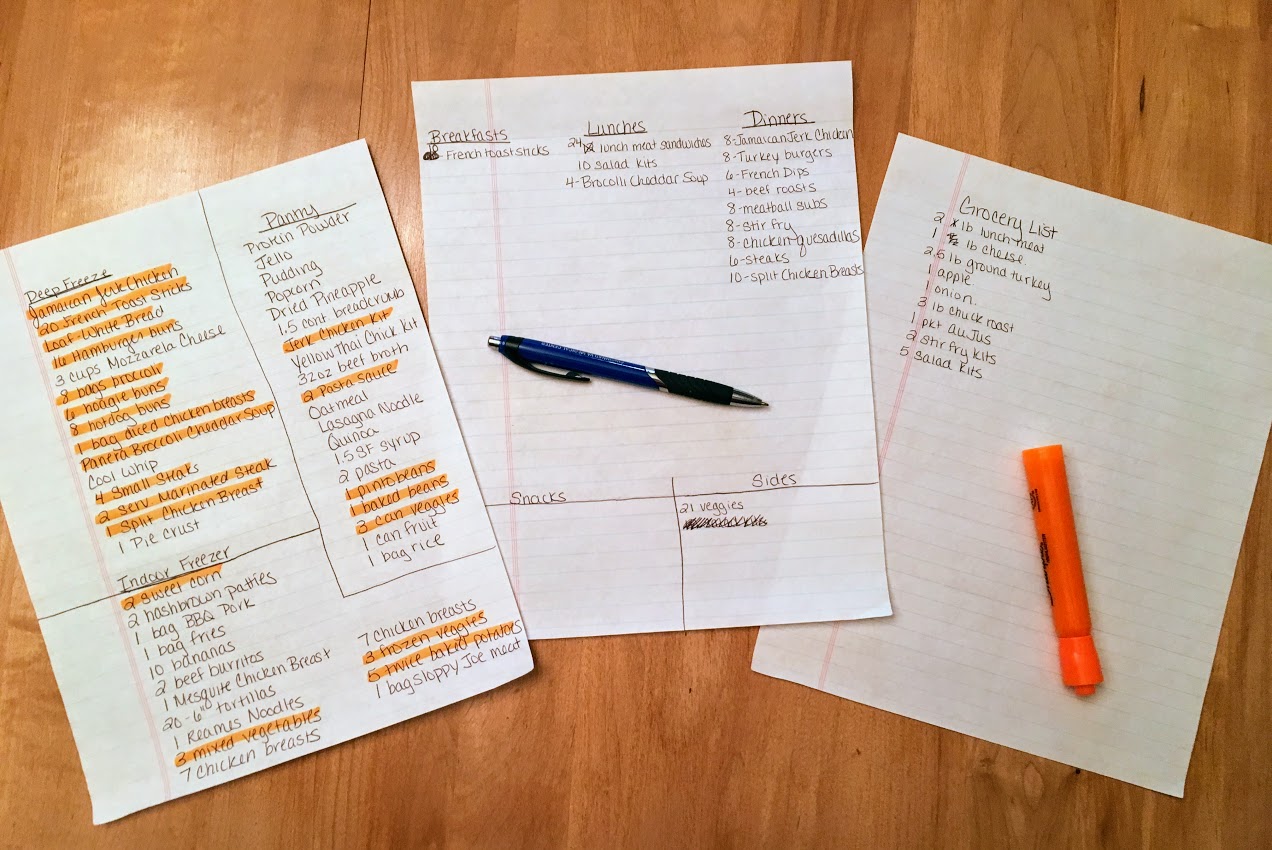 Deep Freeze
Jamaican Jerk Chicken
20 French Toast Sticks
Loaf-White Bread
16 Hamburger buns
3 cups Mozzarela Cheese
8 bags brocoli
6 hoagie buns
8 hotdog buns
1 bag diced chicken breasts
Panera Brocolli Cheddar Soup
Cool Whip
4 Small Steaks
2 serv Marinated Steak
1 Split Chicken Breast
1 Pie crust
Pantry
Protein Powder
Jello
Pudding
Popcorn
Dried Pineapple
1.5 cont breadcrumb
Jerk Chicken Kit
Yellow Thai Chick Kit
32oz beef broth
2 Pasta Sauce
Oatmeal
Lasagna Noodle
Quinoa
1.5 SF Syrup
2 pasta
1 pinto beans
1 baked beans
3 can veggies
1 can fruit
1 bag rice
Indoor Freezer
2 sweet corn
2 hashbrown patties
1 bag BBQ Pork
1 bag fries
10 bananas
2 beef burritos
1 Mesquite Chicken Breast
20-6" tortillas
1 Reames Noodles
3 mixed vegetables
7 Chicken breasts
7 Chicken breasts
3 frozen veggies
5 twice baked potatoes
1 bag Sloppy Joe meat
Breakfasts
- French toast sticks
Lunches
24 lunch meat sandwiches
10 salad kits
4-Brocolli Cheddar Soup
Dinners
8-Jamaican Jerk Chicken
8-Turkey burgers
6-French Dips
4-beef roasts
8-meatball subs
8-stir fry
8-chicken quesadillas
6-steaks
10-split Chicken Breasts
Snacks
Sides
21 veggies
Grocery List
2 lb lunch meat
1 lb cheese
2.5 lb ground turkey
1 apple
1 onion.
3 lb chuck roast
1 pkt au Jus
2 stir fry kits
5 salad kits